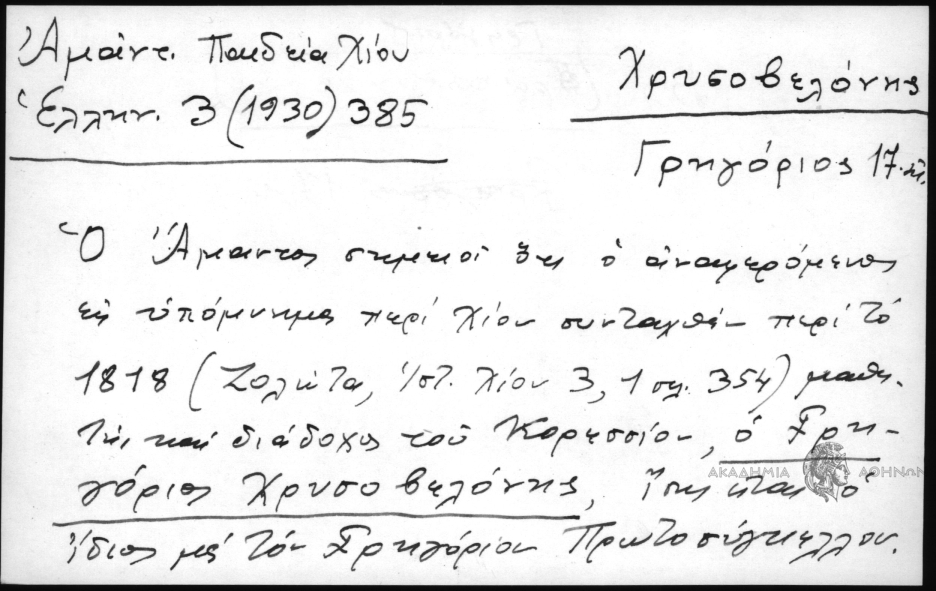 Ἀμάντ. Παιδεία Χίου
Ἑλλην. 3 (1930) 385
Χρυσοβελόνης
Γρηγόριος 17. αἰ.
Ὁ Ἄμαντος σημειοῖ ὅτι ὁ ἀναφερόμενος
εἰς ὑπόμνημα περί Χίου συνταχθέν περί τό
1818 (Ζολώτα, Ἱστ. Χίου 3, 1 σελ. 354) μαθη-
τής καί διάδοχος τοῦ Κορεσσίου, ὁ Γρη-
γόριος Χρυσοβελόνης, ἴσως εἶναι ὁ
ἴδιος μέ τόν Γρηγόριον Πρωτοσύγκελλον.
ΑΚΑΔΗΜΙΑ ΑΘΗΝΩΝ